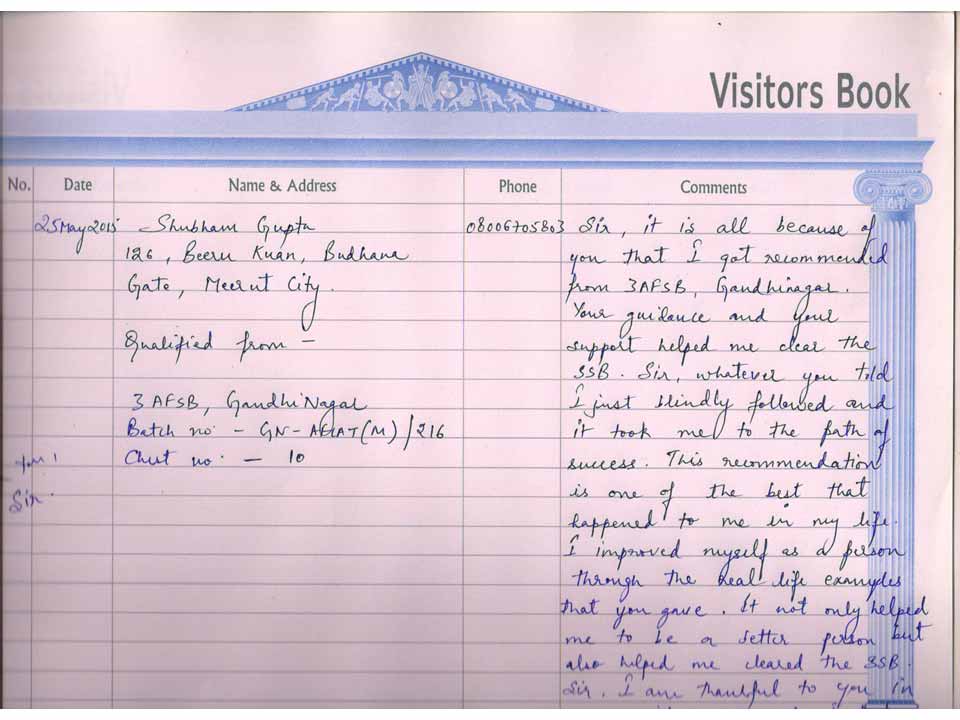 Visitors Book
No. Date Name & Address Phone Comments
25May2015 Shubham Gupta 08006705803 Sir, it is all because of
126, Beeru Kuan, Budhana you that I got recommended
Gate, Meerut City. from 3AFSB, Gandhinagar.
Your guidance and your
Qualified from - support helped me clear the
SSB. Sir, whatever you told
3 AFSB, GandhiNagar I just blindly followed and
Batch no - GN-AFCAT(M)/216 it took me to the path of
Chest no. - 10 success. This recommendation
Sir. is one of the best that
happened to me in my life.
I improved myself as a person
through the real life examples
that you gave. It not only helped
me to be a better person but
also helped me cleared the SSB.
Sir, I am thankful to you in